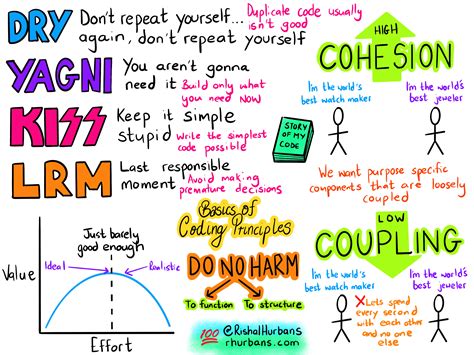 DRY
Don't repeat yourself...
again, don't repeat yourself
Duplicate code usually
isn't good
YAGNI
You aren't gonna
need it
Build only what
you need NOW
KISS
Keep it simple
stupid
Write the simplest
code possible
LRM
Last responsible
moment
Avoid making
premature decisions
STORY
OF MY
CODE
HIGH
COHESION
I'm the world's
best watch maker
I'm the world's
best jeweler
We want purpose specific
components that are loosely
coupled
LOW
COUPLING
I'm the world's
best watch maker
I'm the world's
best jeweler
Lets spend
every second
with each other
and no one
else
Just barely
good enough
Ideal
Realistic
Value
Effort
Basics of
Coding Principles
DO NO HARM
To function
To structure
100
@RishalHurbans
rhurbans.com